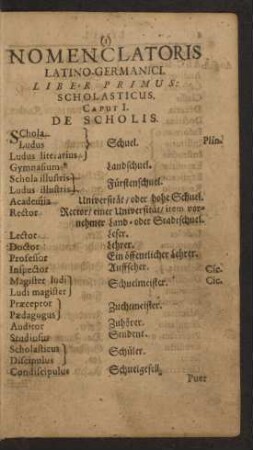 (1)
NOMENCLATORIS
LATINO-GERMANICI,
LIBER PRIMUS:
SCHOLASTICUS.
CAPUT I.
DE SCHOLIS.
SChola
Ludus Schuel. Plin.
Ludus literarius
Gymnasium Landschuel.
Schola illustris
Ludus illustris Fürstenschuel.
Academia Universität/ oder hohe Schuel.
Rector Rector/ einer Universität/ item vor-
nehmer Land- oder Stadtschuel.
Lector Leser.
Doctor Lehrer.
Professor Ein öffentlicher Lehrer.
Inspector Auffseher. Cic.
Magister ludi
Ludi magister Schuelmeister. Cic.
Præceptor
Pædagogus Zuchtmeister.
Auditor Zuhörer.
Studiosus Student.
Scholasticus
Discipulus Schüler.
Condiscipulus Schuelgesell.
Puer